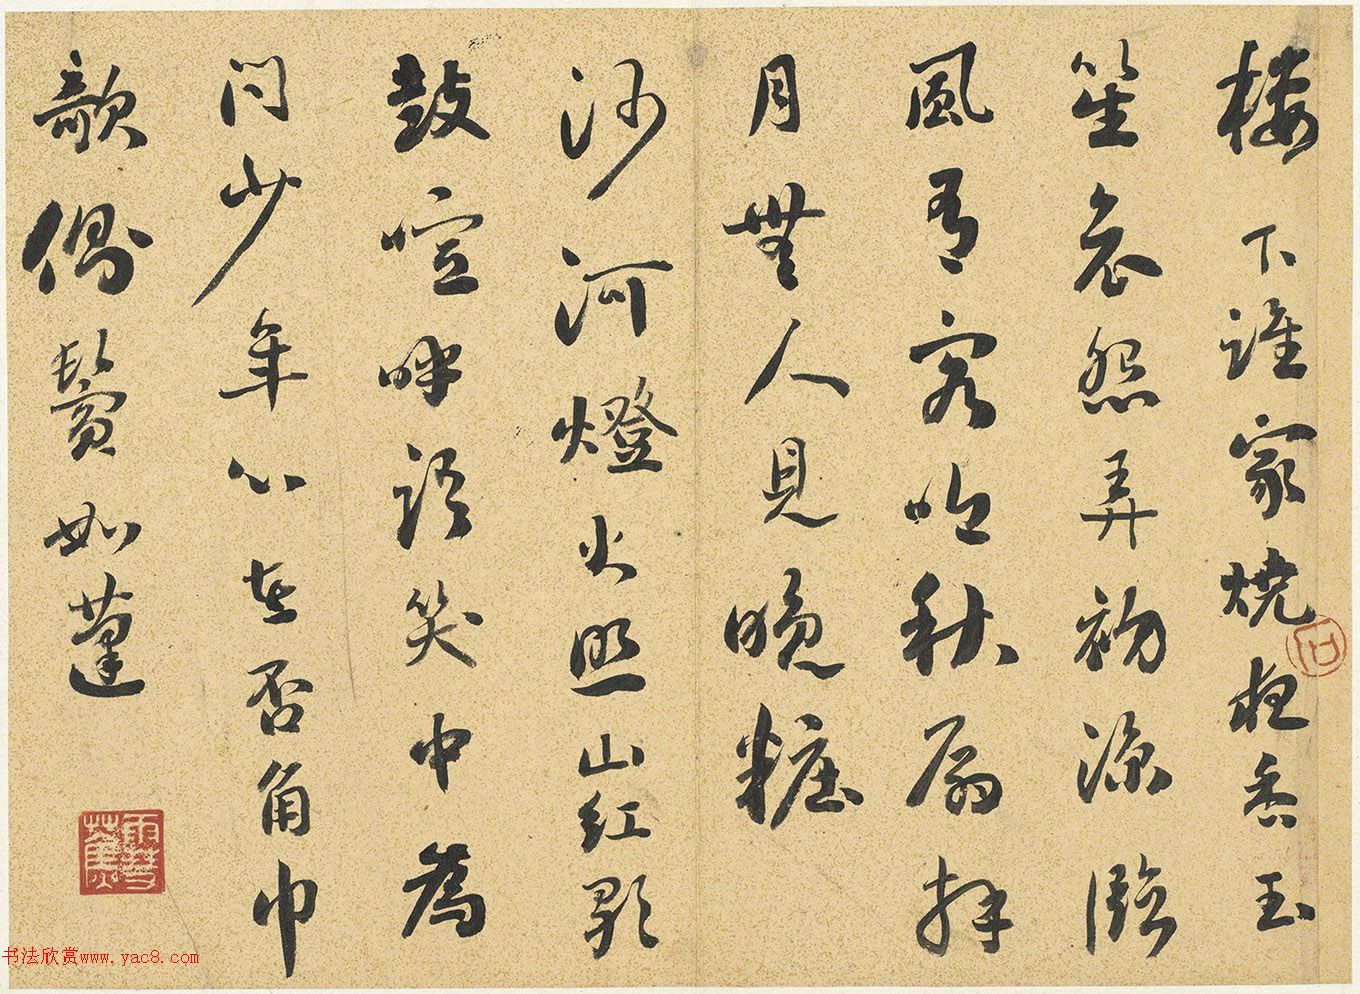 樓下誰家燒夜香玉
笙哀怨弄初涼臨
風有客吟秋扇拜
月無人見晚粧
沙河燈火照山紅歌
鼓喧呼語笑中為
問少年心在否角巾
欹側鬢如蓬
书法欣赏www.yac8.com